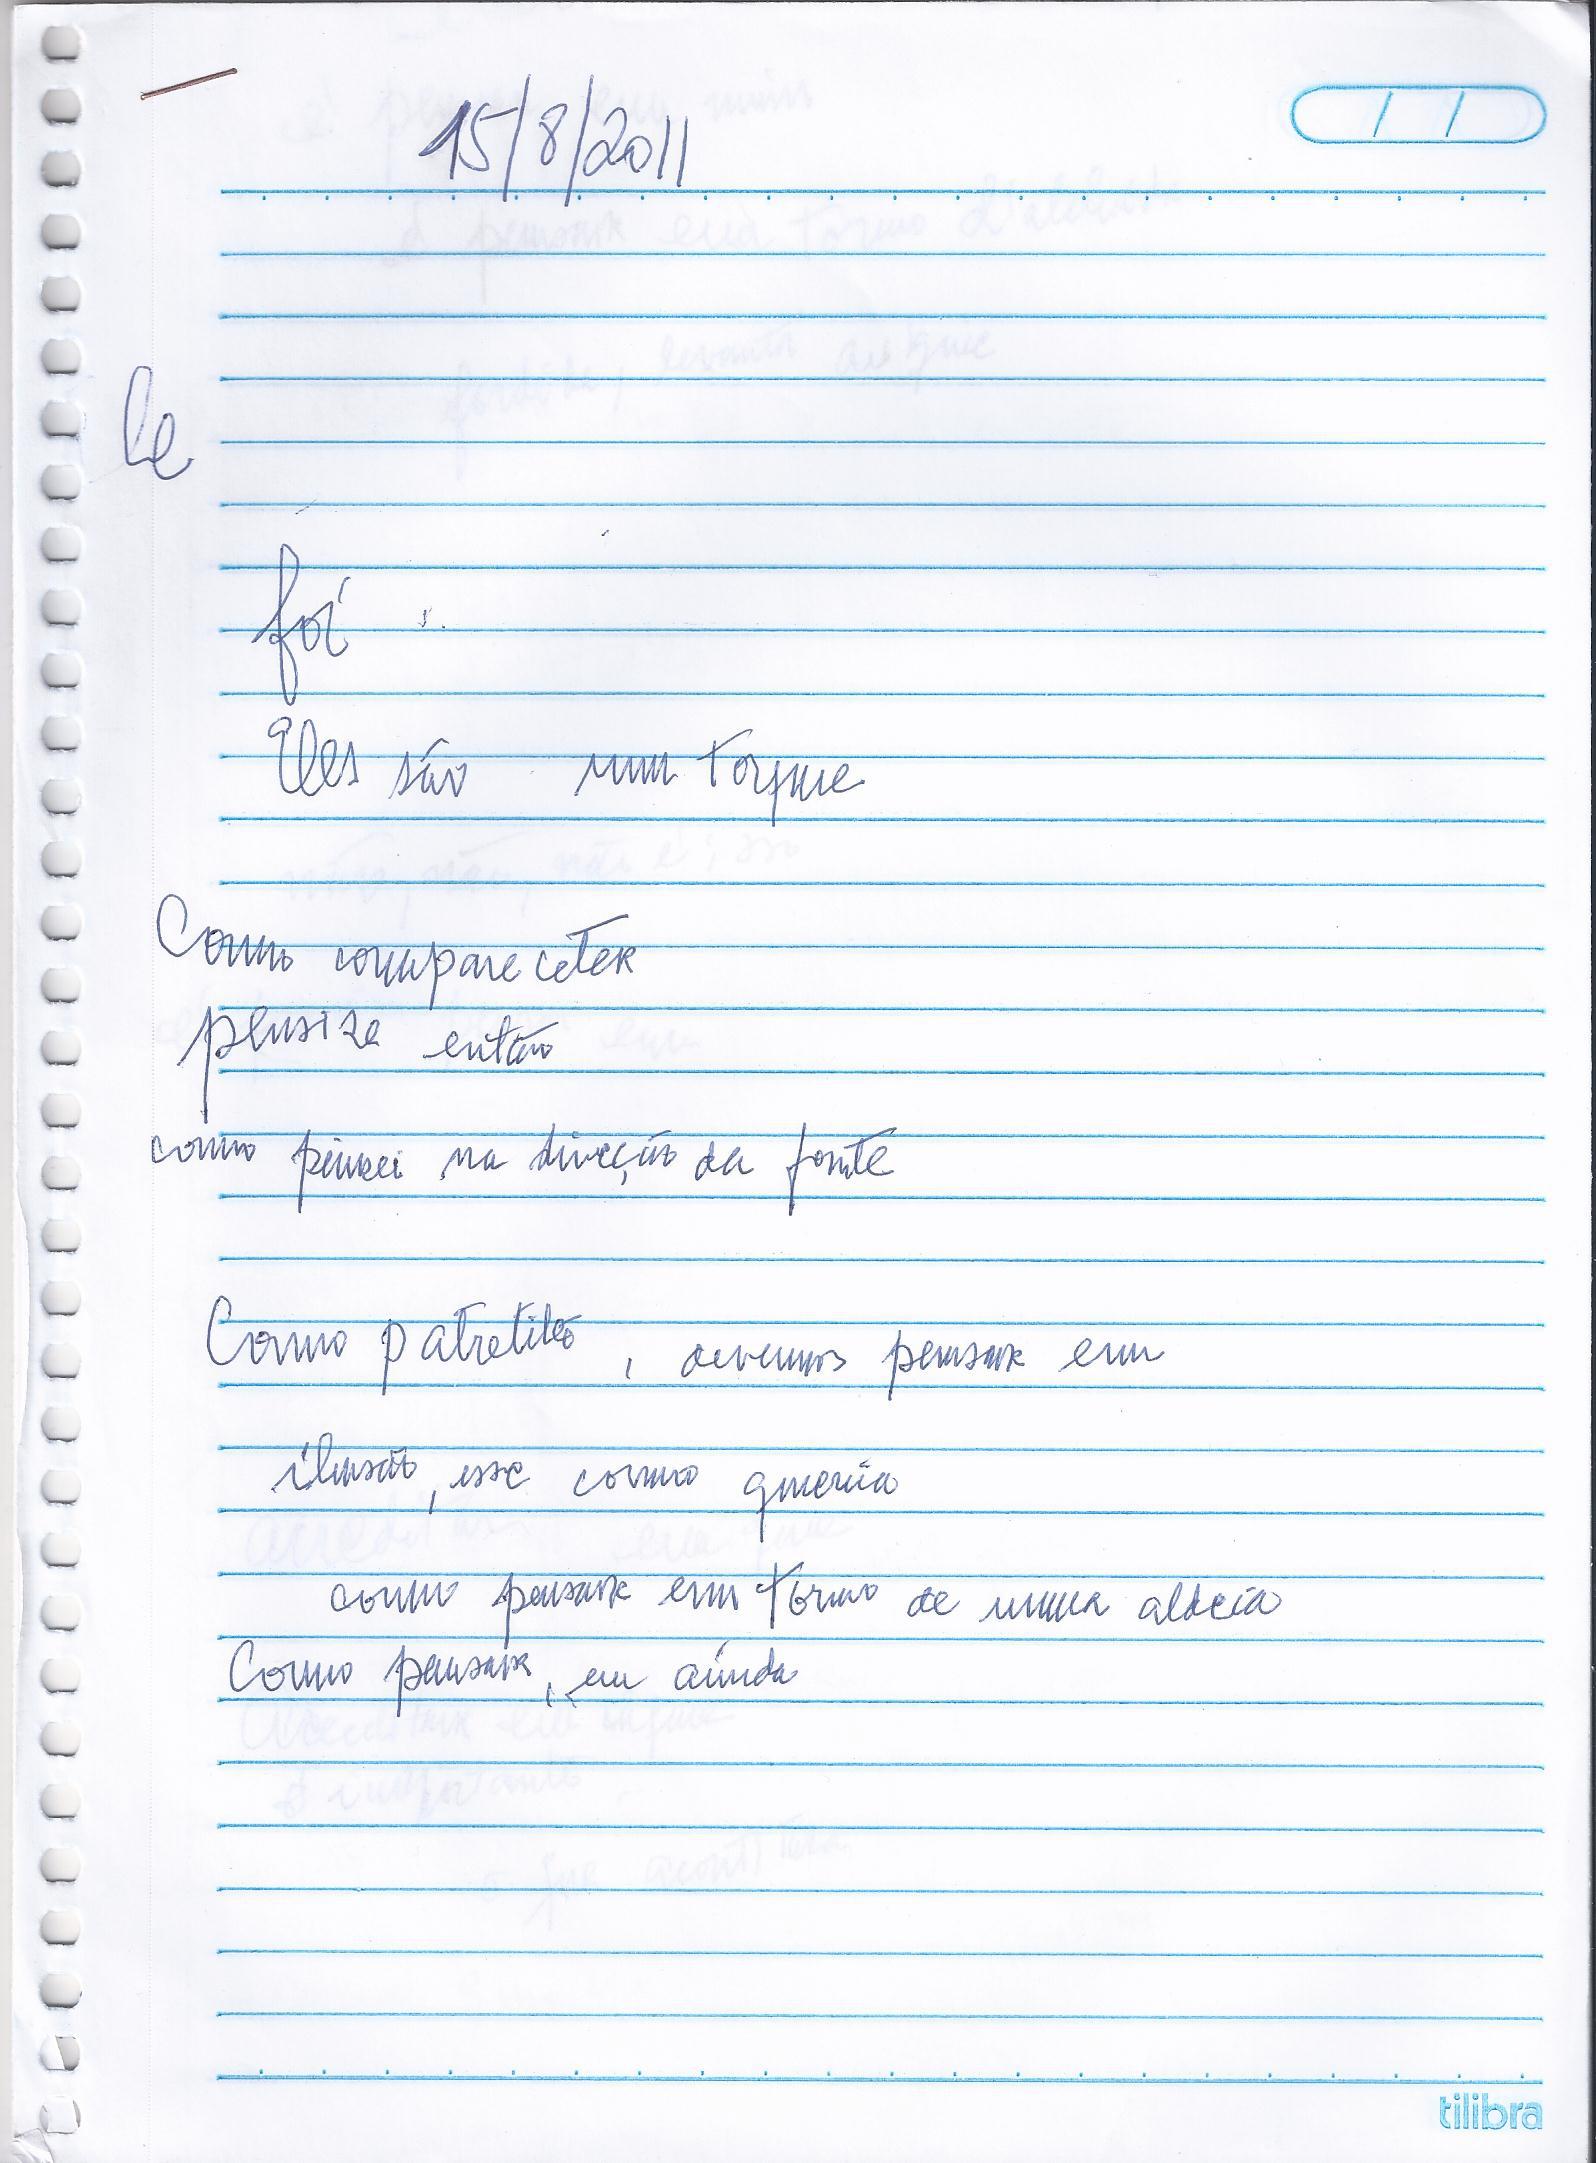 15/8/2011
le
foi
Eles são num torque
Como compareceter
pensize então
como pensei na direção da fonte
Como patretitão, devemos pensar em
ilusão, esse como queria
como pensar em torno de numa aldeia
Como pensar, eu ainda
tilibra